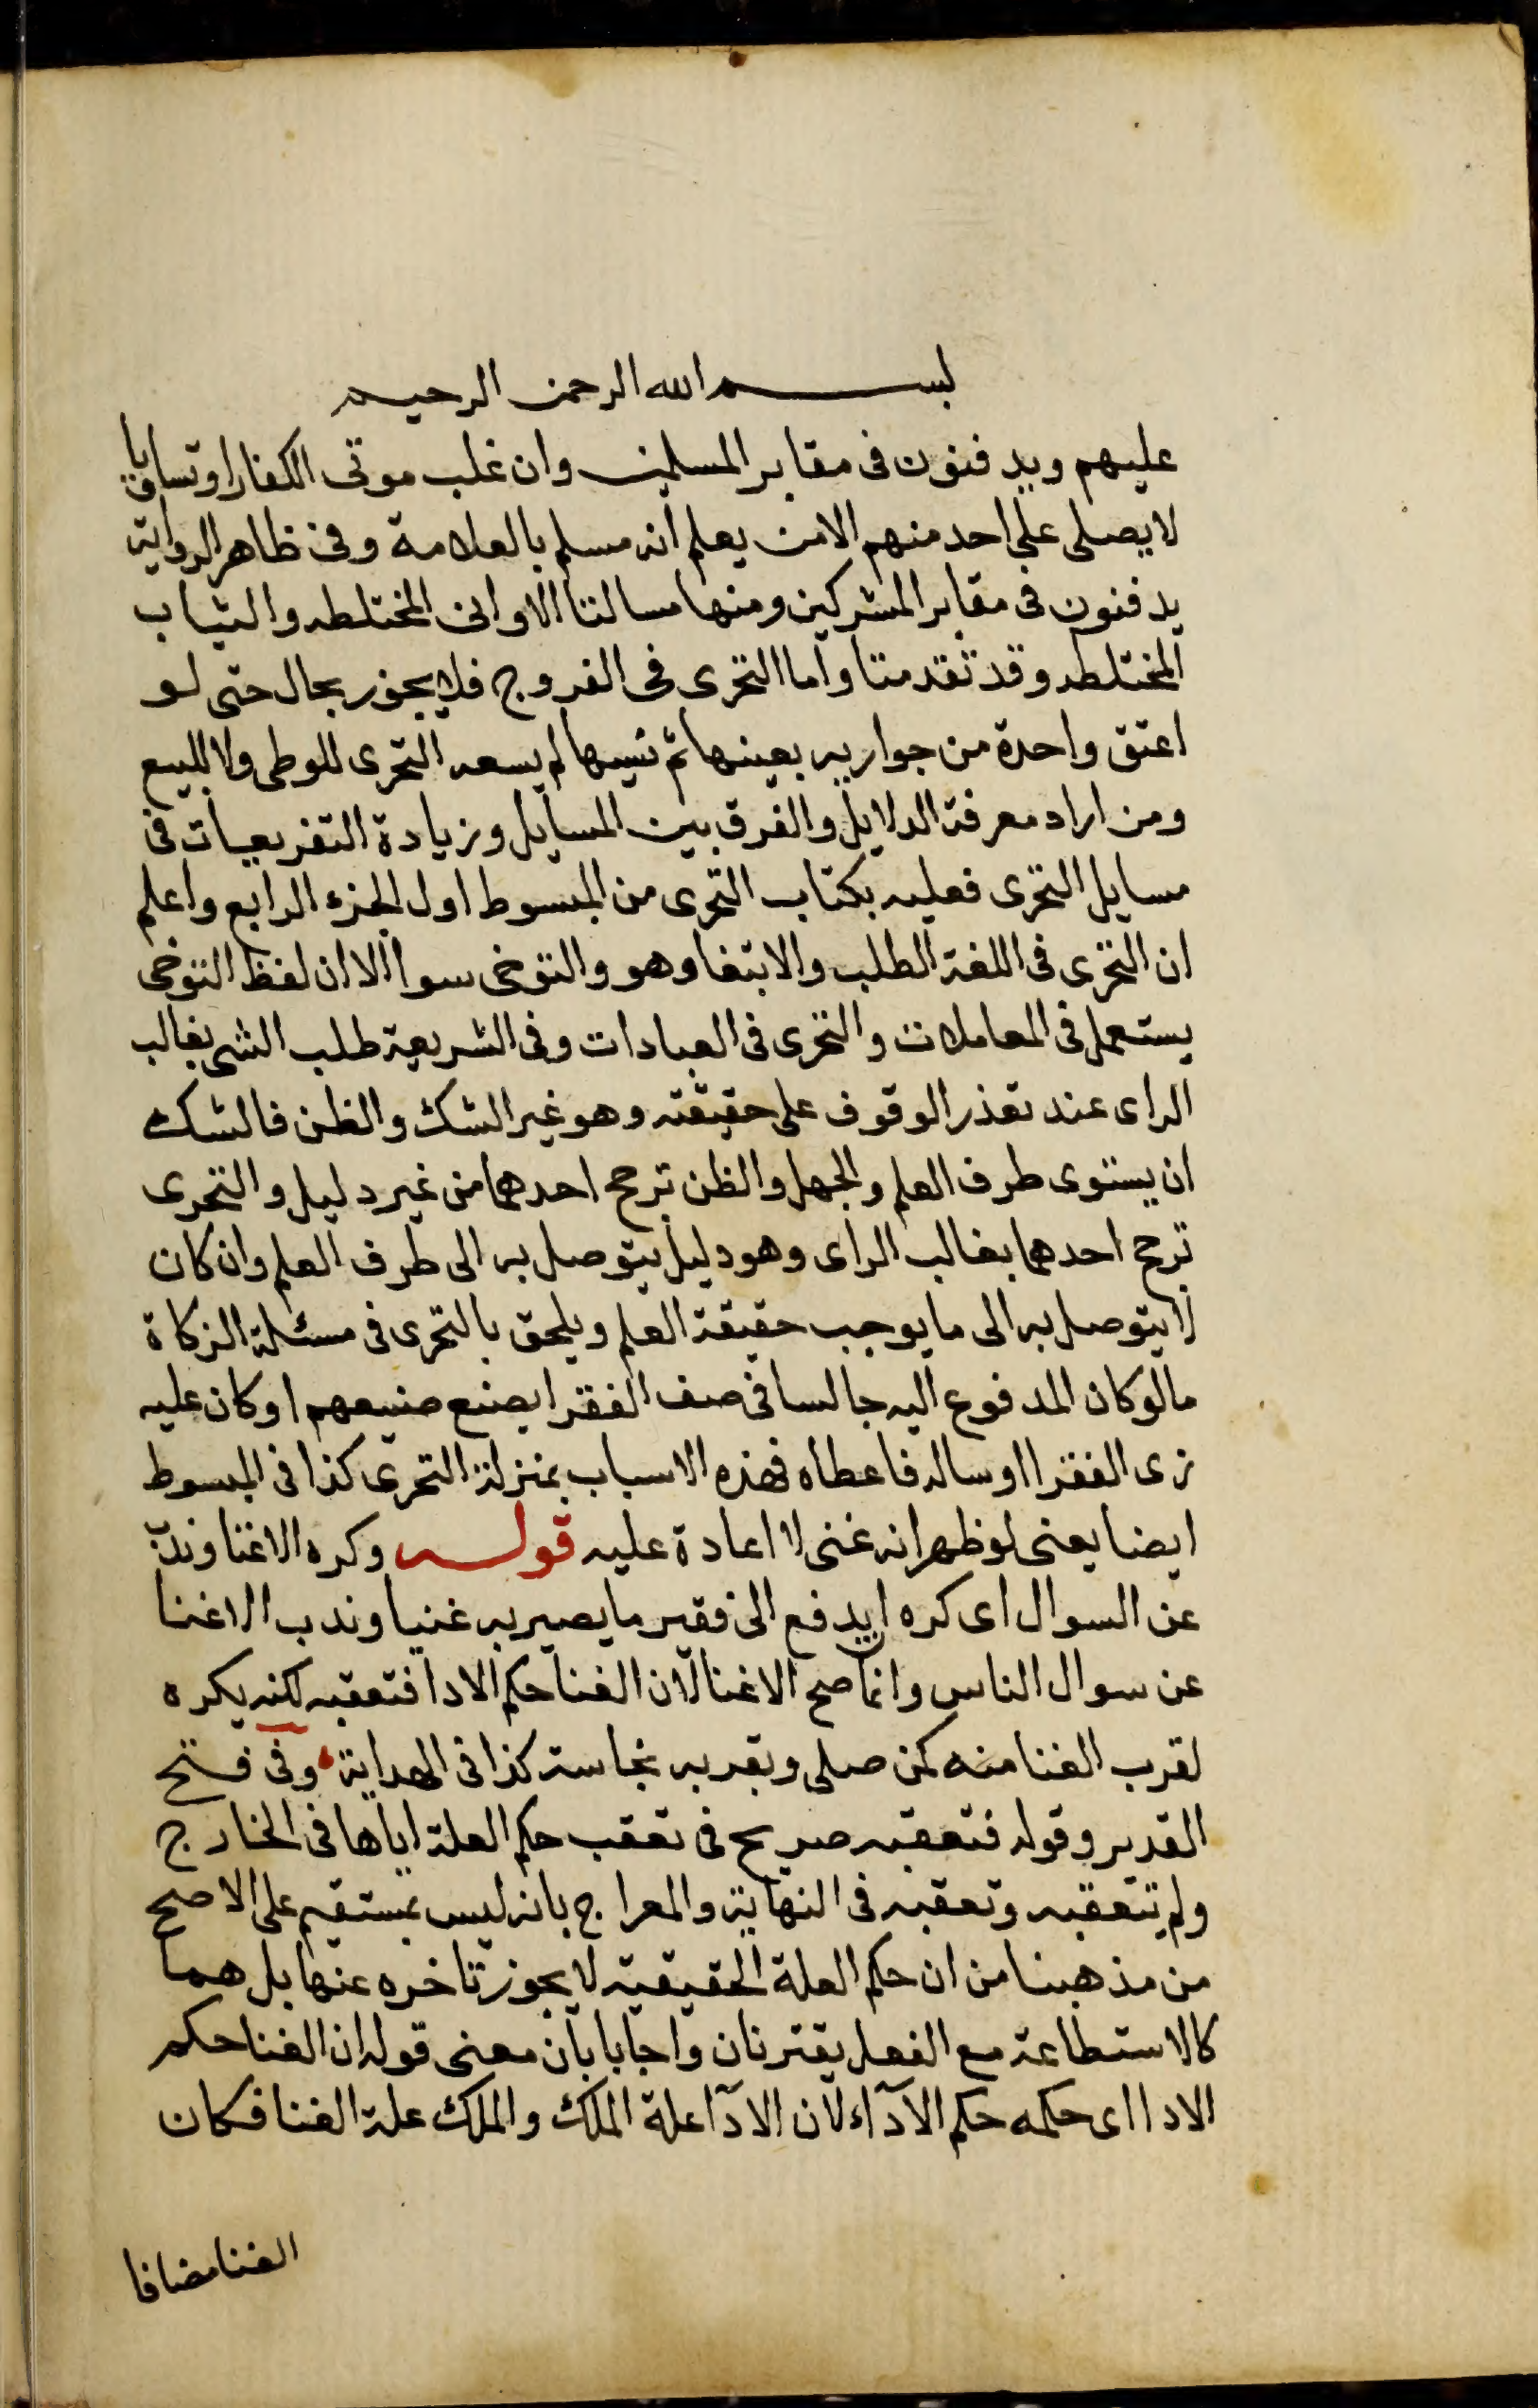 بسم الله الرحمن الرحيم
عليهم ويدفنون فى مقابر المسلمين وان غلب موتى الكفار او تساويا
لا يصلى على احد منهم الا من يعلم انه مسلم بالعلامة وفى ظاهر الرواية
يدفنون فى مقابر المشركين ومنها مسالتا الاوانى المختلطه والثياب
المختلطه وقد تقدمتا واما التحرى فى الفروج فلا يجوز بحال حتى لو
اعتق واحدة من جواريه بعينها ثم نسيها لم يسعه التحرى للوطى ولا للبيع
ومن اراد معرفة الدلايل والفرق بين المسايل وزيادة التفريعات فى
مسايل التحرى فعليه بكتاب التحرى من المبسوط اول الجزء الرابع واعلم
ان التحرى فى اللغة الطلب والابتغا وهو والتوخى سوا الا ان لفظ التوخى
يستعمل فى المعاملات والتحرى فى العبادات وفى الشريعة طلب الشى بغالب
الراى عند تعذر الوقوف على حقيقته وهو غير الشك والظن فالشك
ان يستوى طرف العلم والجهل والظن ترجح احدهما من غير دليل والتحرى
ترجح احدهما بغالب الراى وهو دليل يتوصل به الى طرف العلم وان كان
لا يتوصل به الى ما يوجب حقيقة العلم ويلحق بالتحرى فى مسئلة الزكاة
ما لو كان المدفوع اليه جالسا فى صف الفقرا يصنع صنيعهم او كان عليه
زى الفقرا او ساله فاعطاه فهذه الاسباب بمنزلة التحرى كذا فى المبسوط
ايضا يعنى لو ظهر انه غنى لا اعادة عليه قوله وكره الاغنا وندب
عن السوال اى كره ان يدفع الى فقير ما يصير به غنيا وندب الاغنا
عن سوال الناس وانما صح الاغنا لان الغنا حكم الادا فتعقبه لكنه يكره
لقرب الغنا منه كمن صلى وبقربه نجاسة كذا فى الهداية وفى فتح
القدير وقوله فتعقبه صريح فى تعقب حكم العلة اياها فى الخارج
ولم يتعقبه وتعقبه فى النهاية والمعراج بانه ليس بمستقيم على الاصح
من مذهبنا من ان حكم العلة الحقيقية لا يجوز تاخره عنها بل هما
كالاستطاعة مع الفعل يقترنان واجابا بان معنى قوله ان الغنا حكم
الادا اى حكمه حكم الآدآء لان الادآ علة الملك والملك علة الغنا فكان
الغنا مضافا